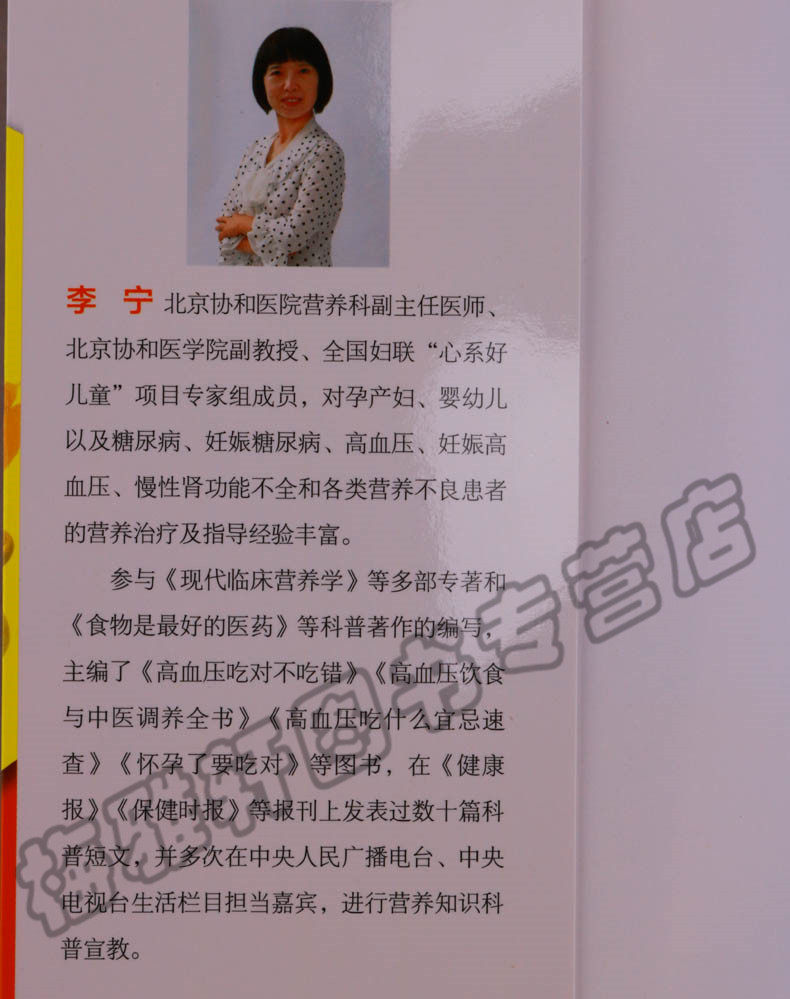 李 宁 北京协和医院营养科副主任医师、
北京协和医学院副教授、全国妇联“心系好
儿童”项目专家组成员，对孕产妇、婴幼儿
以及糖尿病、妊娠糖尿病、高血压、妊娠高
血压、慢性肾功能不全和各类营养不良患者
的营养治疗及指导经验丰富。
参与《现代临床营养学》等多部专著和
《食物是最好的医药》等科普著作的编写，
主编了《高血压吃对不吃错》《高血压饮食
与中医调养全书》《高血压吃什么宜忌速
查》《怀孕了要吃对》等图书，在《健康
报》《保健时报》等报刊上发表过数十篇科
普短文，并多次在中央人民广播电台、中央
电视台生活栏目担当嘉宾，进行营养知识科
普宣教。
梅雅轩图书专营店